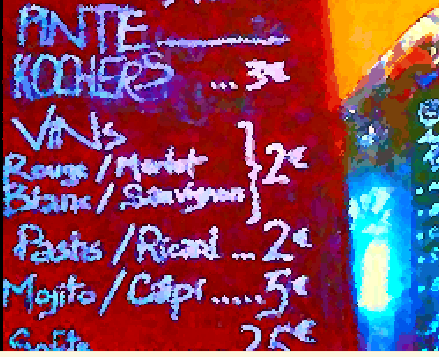 PINTE
KOCHERS ... 3€
VINS
Rouge / Merlot
Blanc / Sauvignon } 2€
Pastis / Ricard ... 2€
Mojito / Caïpi ..... 5€
Softs